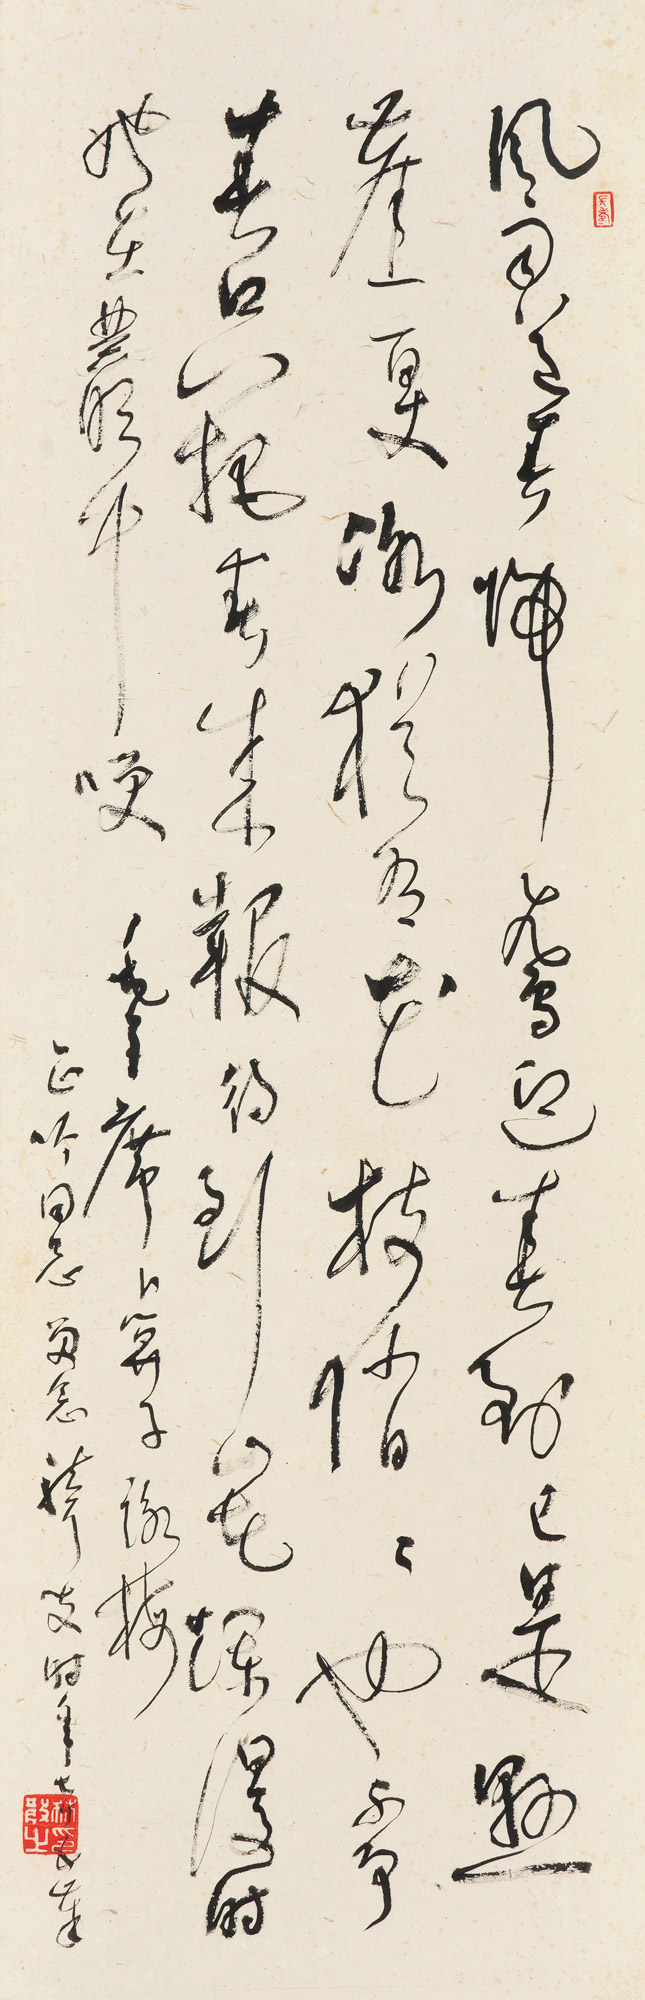 風雨送春歸飛雪迎春到已是懸
崖百丈冰猶有花枝俏〻也不爭
春只把春來報待到山花爛漫時
她在叢中咲
毛主席卜算子詠梅
正吟同志留念 聾叟時年七十
林散之